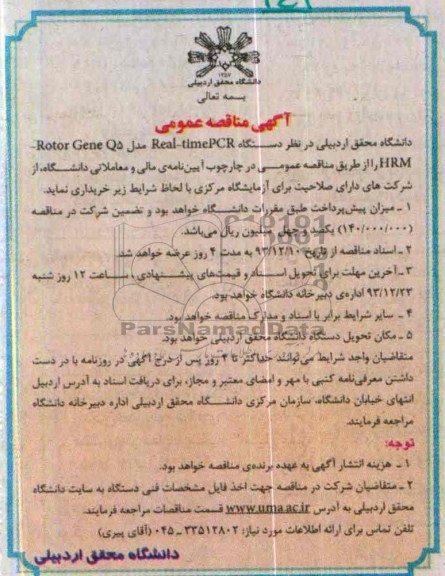 ۱۳۵۷
دانشگاه محقق اردبیلی
بسمه تعالی
آگهی مناقصه عمومی
دانشگاه محقق اردبیلی در نظر دستگاه Real-timePCR مدل Rotor Gene Q۵-
HRM را از طریق مناقصه عمومی در چارچوب آیین‌نامه‌ی مالی و معاملاتی دانشگاه، از
شرکت های دارای صلاحیت برای آزمایشگاه مرکزی با لحاظ شرایط زیر خریداری نماید.
۱ ـ میزان پیش‌پرداخت طبق مقررات دانشگاه خواهد بود و تضمین شرکت در مناقصه
(۱۴۰/۰۰۰/۰۰۰) یکصد و چهل میلیون ریال می‌باشد.
۲ ـ اسناد مناقصه از تاریخ ۹۳/۱۲/۱۰ به مدت ۴ روز عرضه خواهد شد.
۳ ـ آخرین مهلت برای تحویل اسناد و قیمت‌های پیشنهادی، ساعت ۱۲ روز شنبه
۹۳/۱۲/۲۳ اداره‌ی دبیرخانه دانشگاه خواهد بود.
۴ ـ سایر شرایط برابر با اسناد و مدارک مناقصه خواهد بود.
ParsNamadData
۵ ـ مکان تحویل دستگاه دانشگاه محقق اردبیلی خواهد بود.
متقاضیان واجد شرایط می‌توانند حداکثر تا ۴ روز پس از درج آگهی در روزنامه با در دست
داشتن معرفی‌نامه کتبی با مهر و امضای معتبر و مجاز، برای دریافت اسناد به آدرس اردبیل
انتهای خیابان دانشگاه، سازمان مرکزی دانشگاه محقق اردبیلی اداره دبیرخانه دانشگاه
مراجعه فرمایند.
توجه:
۱ ـ هزینه انتشار آگهی به عهده برنده‌ی مناقصه خواهد بود.
۲ ـ متقاضیان شرکت در مناقصه جهت اخذ فایل مشخصات فنی دستگاه به سایت دانشگاه
محقق اردبیلی به آدرس www.uma.ac.ir قسمت مناقصات مراجعه فرمایند.
تلفن تماس برای ارائه اطلاعات مورد نیاز: ۳۳۵۱۲۸۰۲ ـ ۰۴۵ (آقای پیری)
دانشگاه محقق اردبیلی